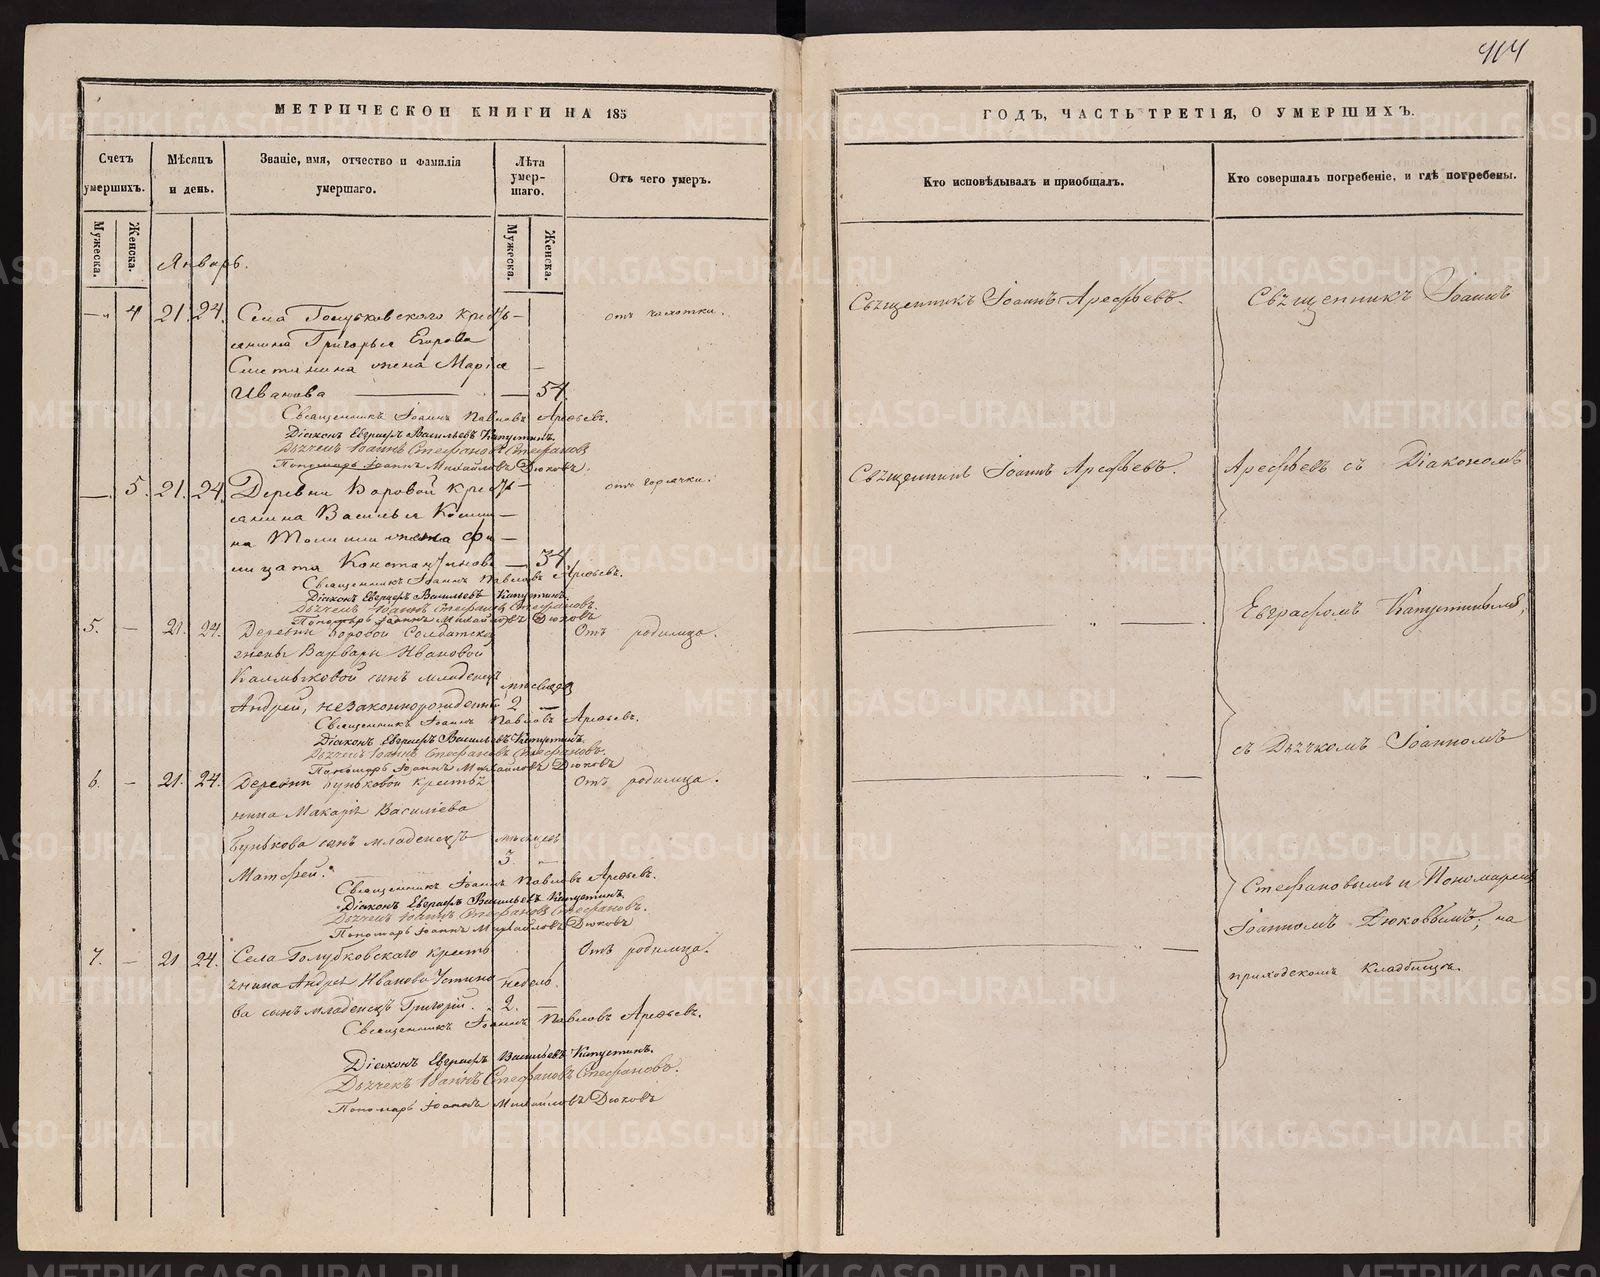 414
МЕТРИЧЕСКОЙ КНИГИ НА 185
ГОДЪ, ЧАСТЬ ТРЕТІЯ, О УМЕРШИХЪ.
Счетъ умершихъ.
Мѣсяцъ и день.
Званіе, имя, отчество и фамилія умершаго.
Лѣта умер-
шаго.
Отъ чего умеръ.
Кто исповѣдывалъ и пріобщалъ.
Кто совершалъ погребеніе, и гдѣ погребены.
Мужеска.
Женска.
Мужеска.
Женска.
Январь.
— 4 21. 24. Села Голубковскаго кресть-
янина Григорья Егорова
Сметанина жена Марія
Иванова — 54.
отъ чахотки.
Священникъ Іоаннъ Арефьевъ.
Священникъ Іоаннъ Павловъ Арефьевъ.
Діаконъ Евграфъ Васильевъ Капустинъ.
Дьячекъ Іоаннъ Стефановъ Стефановъ
Пономарь Іоаннъ Михайловъ Дюковъ.
— 5. 21. 24. Деревни Боровой кресть-
янина Василья Козми-
на жена Фи-
лицата Константинова — 34.
отъ горячки.
Священникъ Іоаннъ Арефьевъ.
Священникъ Іоаннъ Павловъ Арефьевъ.
Діаконъ Евграфъ Васильевъ Капустинъ.
Дьячекъ Іоаннъ Стефановъ Стефановъ.
Пономарь Іоаннъ Михайловъ Дюковъ
5. — 21. 24. Деревни Боровой Солдатской
жены Варвары Ивановой
Калмыковой сынъ младенецъ
Андрей, незаконнорожденный
мѣсяцовъ
2 —
Отъ родимца.
Священникъ Іоаннъ Павловъ Арефьевъ.
Діаконъ Евграфъ Васильевъ Капустинъ.
Дьячекъ Іоаннъ Стефановъ Стефановъ.
Пономарь Іоаннъ Михайловъ Дюковъ
6. — 21. 24. Деревни Буньковой крестья-
нина Макарія Васильева
Бунькова сынъ младенецъ
Матфей.
мѣсяцовъ
3. —
Отъ родимца.
Священникъ Іоаннъ Павловъ Арефьевъ.
Діаконъ Евграфъ Васильевъ Капустинъ.
Дьячекъ Іоаннъ Стефановъ Стефановъ.
Пономарь Іоаннъ Михайловъ Дюковъ
7. — 21 24. Села Голубковскаго кресть-
янина Андрея Иванова Устино-
ва сынъ младенецъ Григорій.
недель.
2. —
Отъ родимца.
Священникъ Іоаннъ Павловъ Арефьевъ.
Діаконъ Евграфъ Васильевъ Капустинъ.
Дьячекъ Іоаннъ Стефановъ Стефановъ.
Пономарь Іоаннъ Михайловъ Дюковъ
Священникъ Іоаннъ
Арефьевъ съ Діакономъ
Евграфомъ Капустинымъ,
съ Дьячкомъ Іоанномъ
Стефановымъ и Пономаремъ
Іоанномъ Дюковымъ, на
приходскомъ кладбищѣ.
METRIKI.GASO-URAL.RU